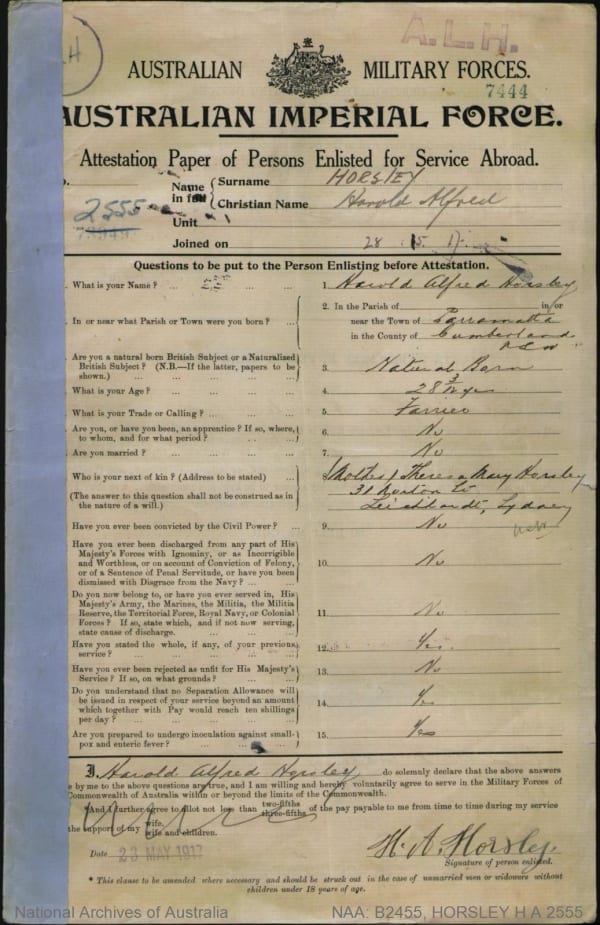 A.L.H.
AUSTRALIAN MILITARY FORCES.
7444
AUSTRALIAN IMPERIAL FORCE.
Attestation Paper of Persons Enlisted for Service Abroad.
Name in full { Surname HORSLEY
Christian Name Harold Alfred
2555
Unit
Joined on 28 . 5 . 17
Questions to be put to the Person Enlisting before Attestation.
What is your Name? ... ... ... 1. Harold Alfred Horsley
In or near what Parish or Town were you born? ... 2. In the Parish of in/or
near the Town of Parramatta
in the County of Cumberland
NSW
Are you a natural born British Subject or a Naturalized
British Subject? (N.B.—If the latter, papers to be
shown.) ... ... ... 3. Natural Born
What is your Age? ... ... ... 4. 28 3/12 yrs
What is your Trade or Calling? ... ... ... 5. Farrier
Are you, or have you been, an apprentice? If so, where,
to whom, and for what period? ... ... 6. No
Are you married? ... ... ... 7. No
Who is your next of kin? (Address to be stated) ... (Mother) Theresa Mary Horsley
31 Norton St
(The answer to this question shall not be construed as in
the nature of a will.) Leichhardt, Sydney
Have you ever been convicted by the Civil Power? ... 9. No
Have you ever been discharged from any part of His
Majesty's Forces with Ignominy, or as Incorrigible
and Worthless, or on account of Conviction of Felony,
or of a Sentence of Penal Servitude, or have you been
dismissed with Disgrace from the Navy? ... ... 10. No
Do you now belong to, or have you ever served in, His
Majesty's Army, the Marines, the Militia, the Militia
Reserve, the Territorial Force, Royal Navy, or Colonial
Forces? If so, state which, and if not now serving,
state cause of discharge. ... ... ... 11. No
Have you stated the whole, if any, of your previous
service? ... ... ... ... 12. Yes.
Have you ever been rejected as unfit for His Majesty's
Service? If so, on what grounds? ... ... 13. No
Do you understand that no Separation Allowance will
be issued in respect of your service beyond an amount
which together with Pay would reach ten shillings
per day? ... ... ... ... 14. Yes
Are you prepared to undergo inoculation against small-
pox and enteric fever? ... ... ... 15. Yes
I, Harold Alfred Horsley do solemnly declare that the above answers
by me to the above questions are true, and I am willing and hereby voluntarily agree to serve in the Military Forces of
Commonwealth of Australia within or beyond the limits of the Commonwealth.
*And I further agree to allot not less than two-fifths three-fifths of the pay payable to me from time to time during my service
the support of my wife. wife and children.
Date 23 MAY 1917
H. A. Horsley
Signature of person enlisted.
* This clause to be amended where necessary and should be struck out in the case of unmarried men or widowers without
children under 18 years of age.
National Archives of Australia NAA: B2455, HORSLEY H A 2555